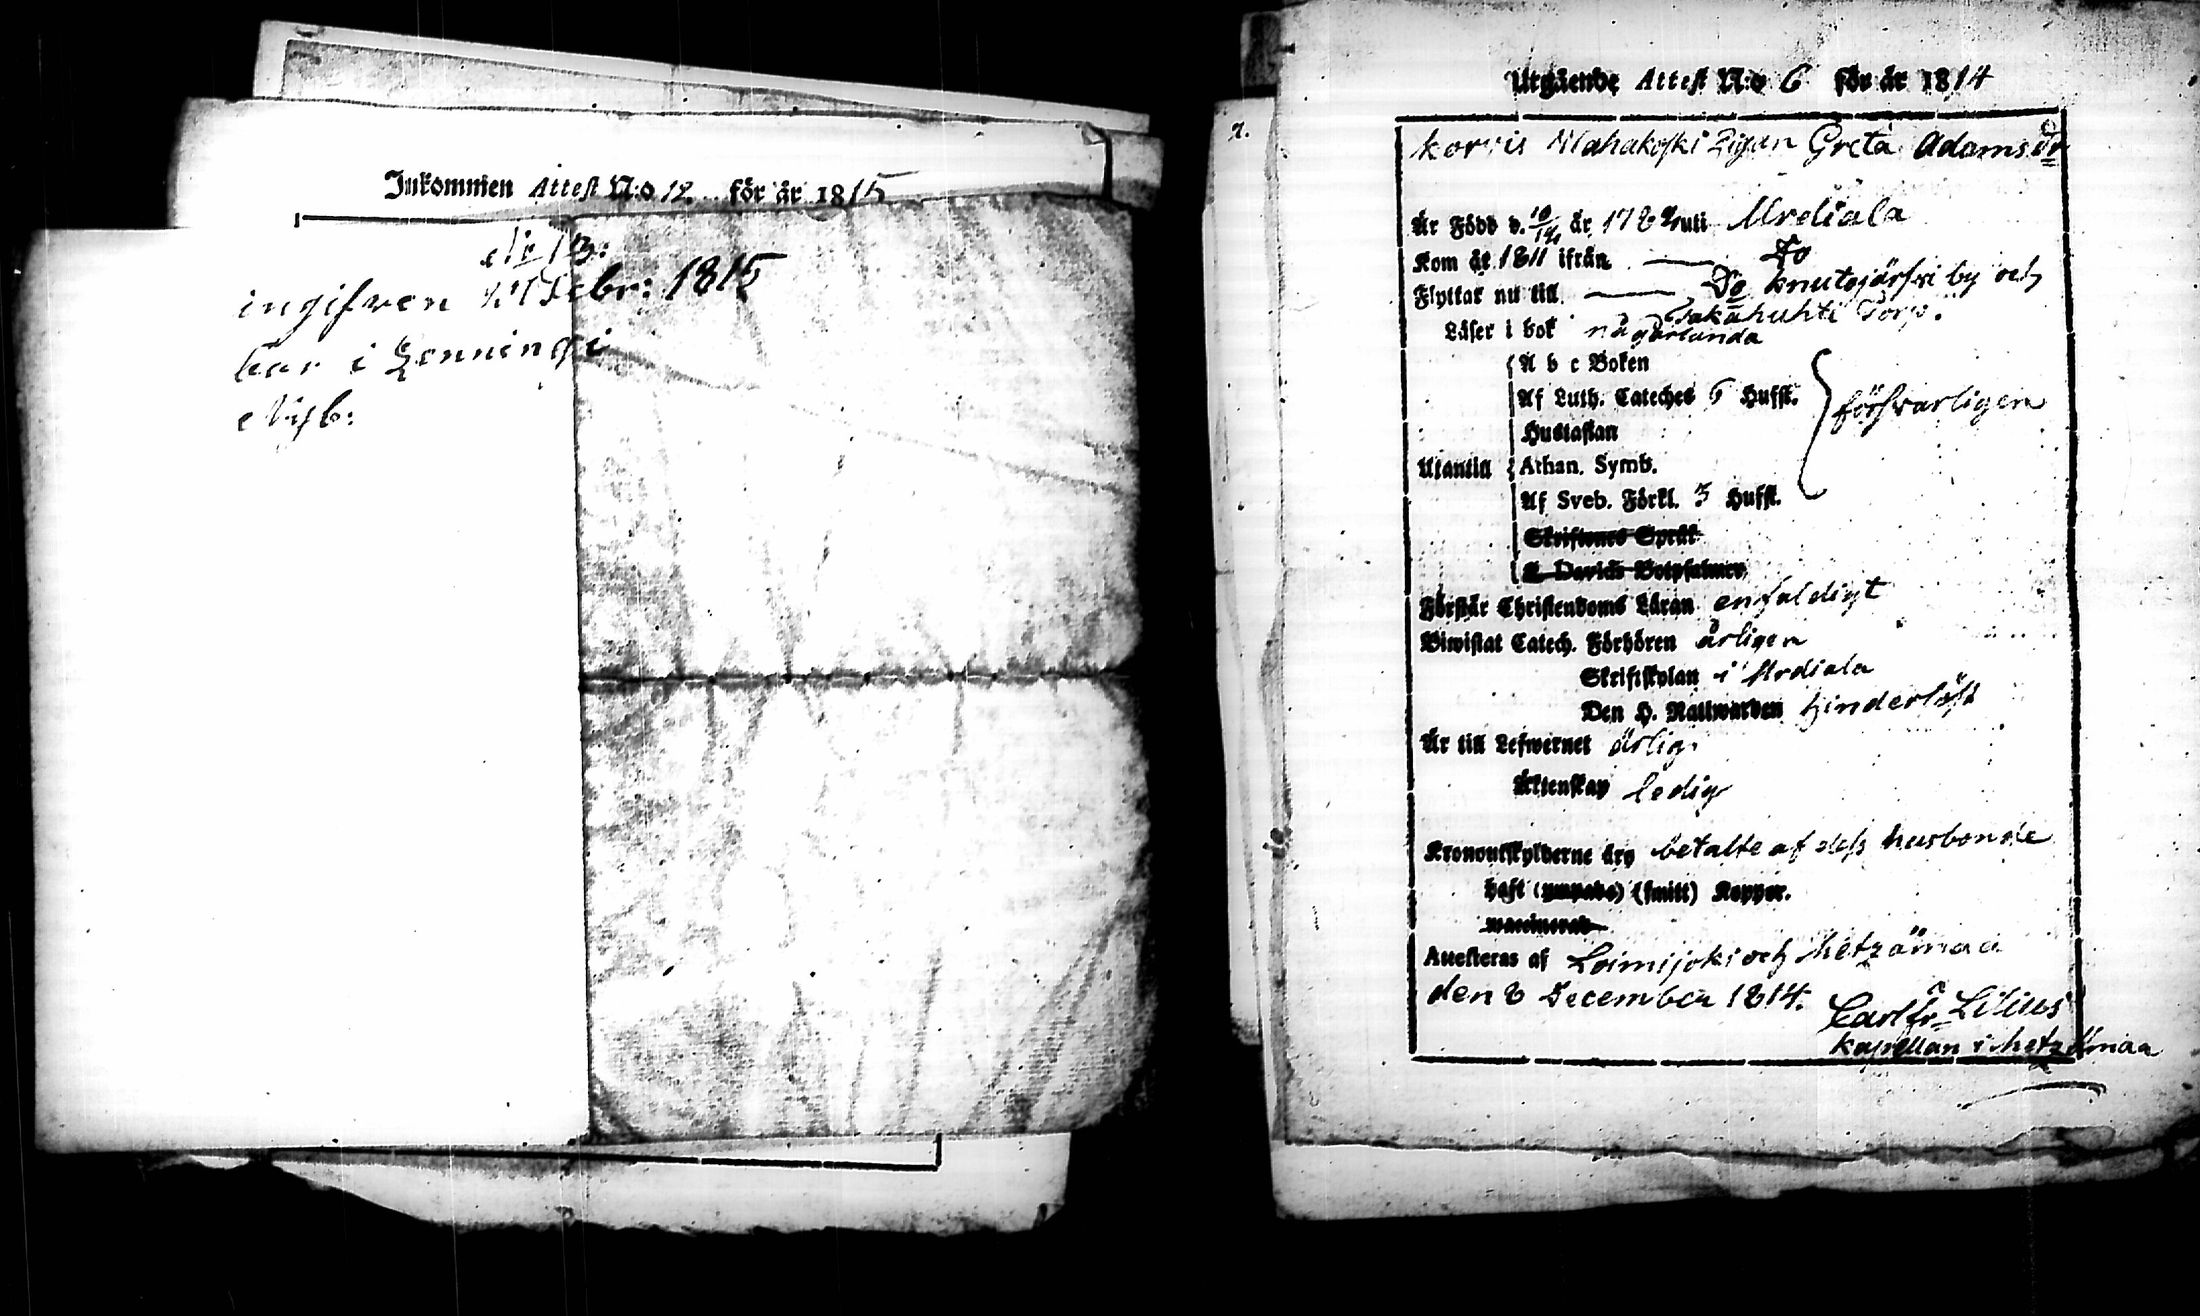 Inkommen Attest N:o 12. för år 1815
N:o 13:
ingifven Febr: 1815
bar i Henningi
Utgående Attest N:o 6 för år 1814
2.
korvis Mahakoski Pigan Greta Adamsdr
Är Född d. 10/12 är 1782 uti Urdiala
Kom år 1811 ifrån — Do
Flyttar nu till — Do knutsjärfvi by och
Takahuhti Torp.
Läser i bok någorlunda
A b c Boken
Af Luth. Cateches 6 Hufst. försvarligen
Hustaflan
Utantill Athan. Symb.
Af Sveb. Förkl. 3 Hufst.
Skriftenes Språk
Davids Botpsalmer
Förstår Christendoms Läran enfaldigt
Biwistat Catech. Förhören årligen
Skriftskolan i Urdiala
Den H. Nattwarden hinderlöst
Är till Lefwernet ärlig
Äktenskap Ledig
Kronoutskylderne äro betalte af dess husbonde
haft (ympade) (smitt) Koppor.
vaccinerad
Attesteras af Loimijoki och Metzämaa
den 8 December 1814.
Carl Fr. Lilius
kapellan i Metzämaa